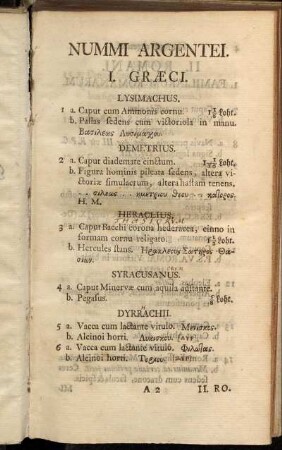 NUMMI ARGENTEI.
I. GRÆCI.
LYSIMACHUS.
1 a. Caput cum Ammonis cornu. Loht.
b. Pallas sedens cum victoriola in manu.
Βασιλεως Λυσιμαχου.
DEMETRIUS.
2 a. Caput diademate cinctum. Loht.
b. Figura hominis pileata sedens, altera
victoriæ simulacrum, altera hastam tenens.
H. M.
HERACLIUS.
3 a. Caput Bacchi corona hederacea, cinno in
formam cornu religato. Loht.
b. Hercules stans. Ηρακλεους Σωτηρος Θα-
σιων.
SYRACUSANUS.
4 a. Caput Minervæ cum aquila
b. Pegasus. Loht.
DYRRACHII.
5 a. Vacca cum lactante vitulo. Μενισκος.
b. Alcinoi horti.
6 a. Vacca cum lactante vitulo.
b. Alcinoi horti.
A 2 II. RO.